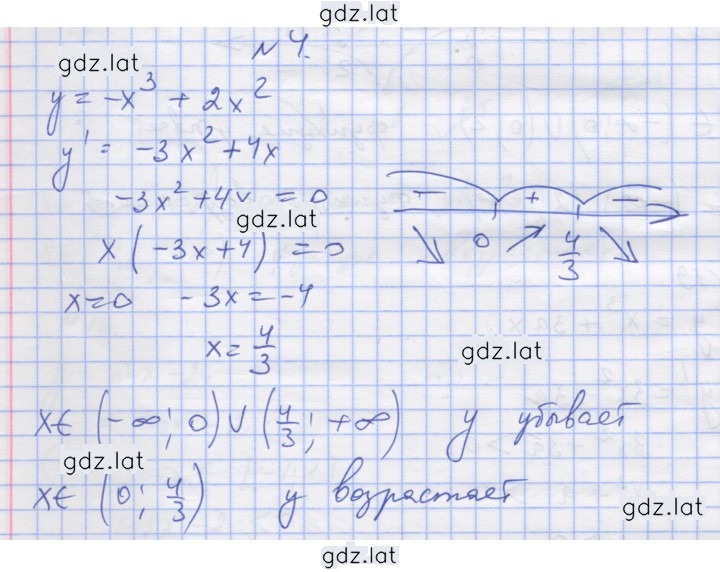 gdz.lat
№ 4.
gdz.lat
y = -x³ + 2x²
y' = -3x² + 4x
-3x² + 4x = 0
gdz.lat
x(-3x+4) = 0
x=0 -3x = -4
x = 4/3
− + −
↘ 0 ↗ 4/3 ↘
gdz.lat
x∈ (-∞; 0) ∨ (4/3; +∞) y убывает
gdz.lat
x∈ (0; 4/3) y возрастает
gdz.lat
gdz.lat